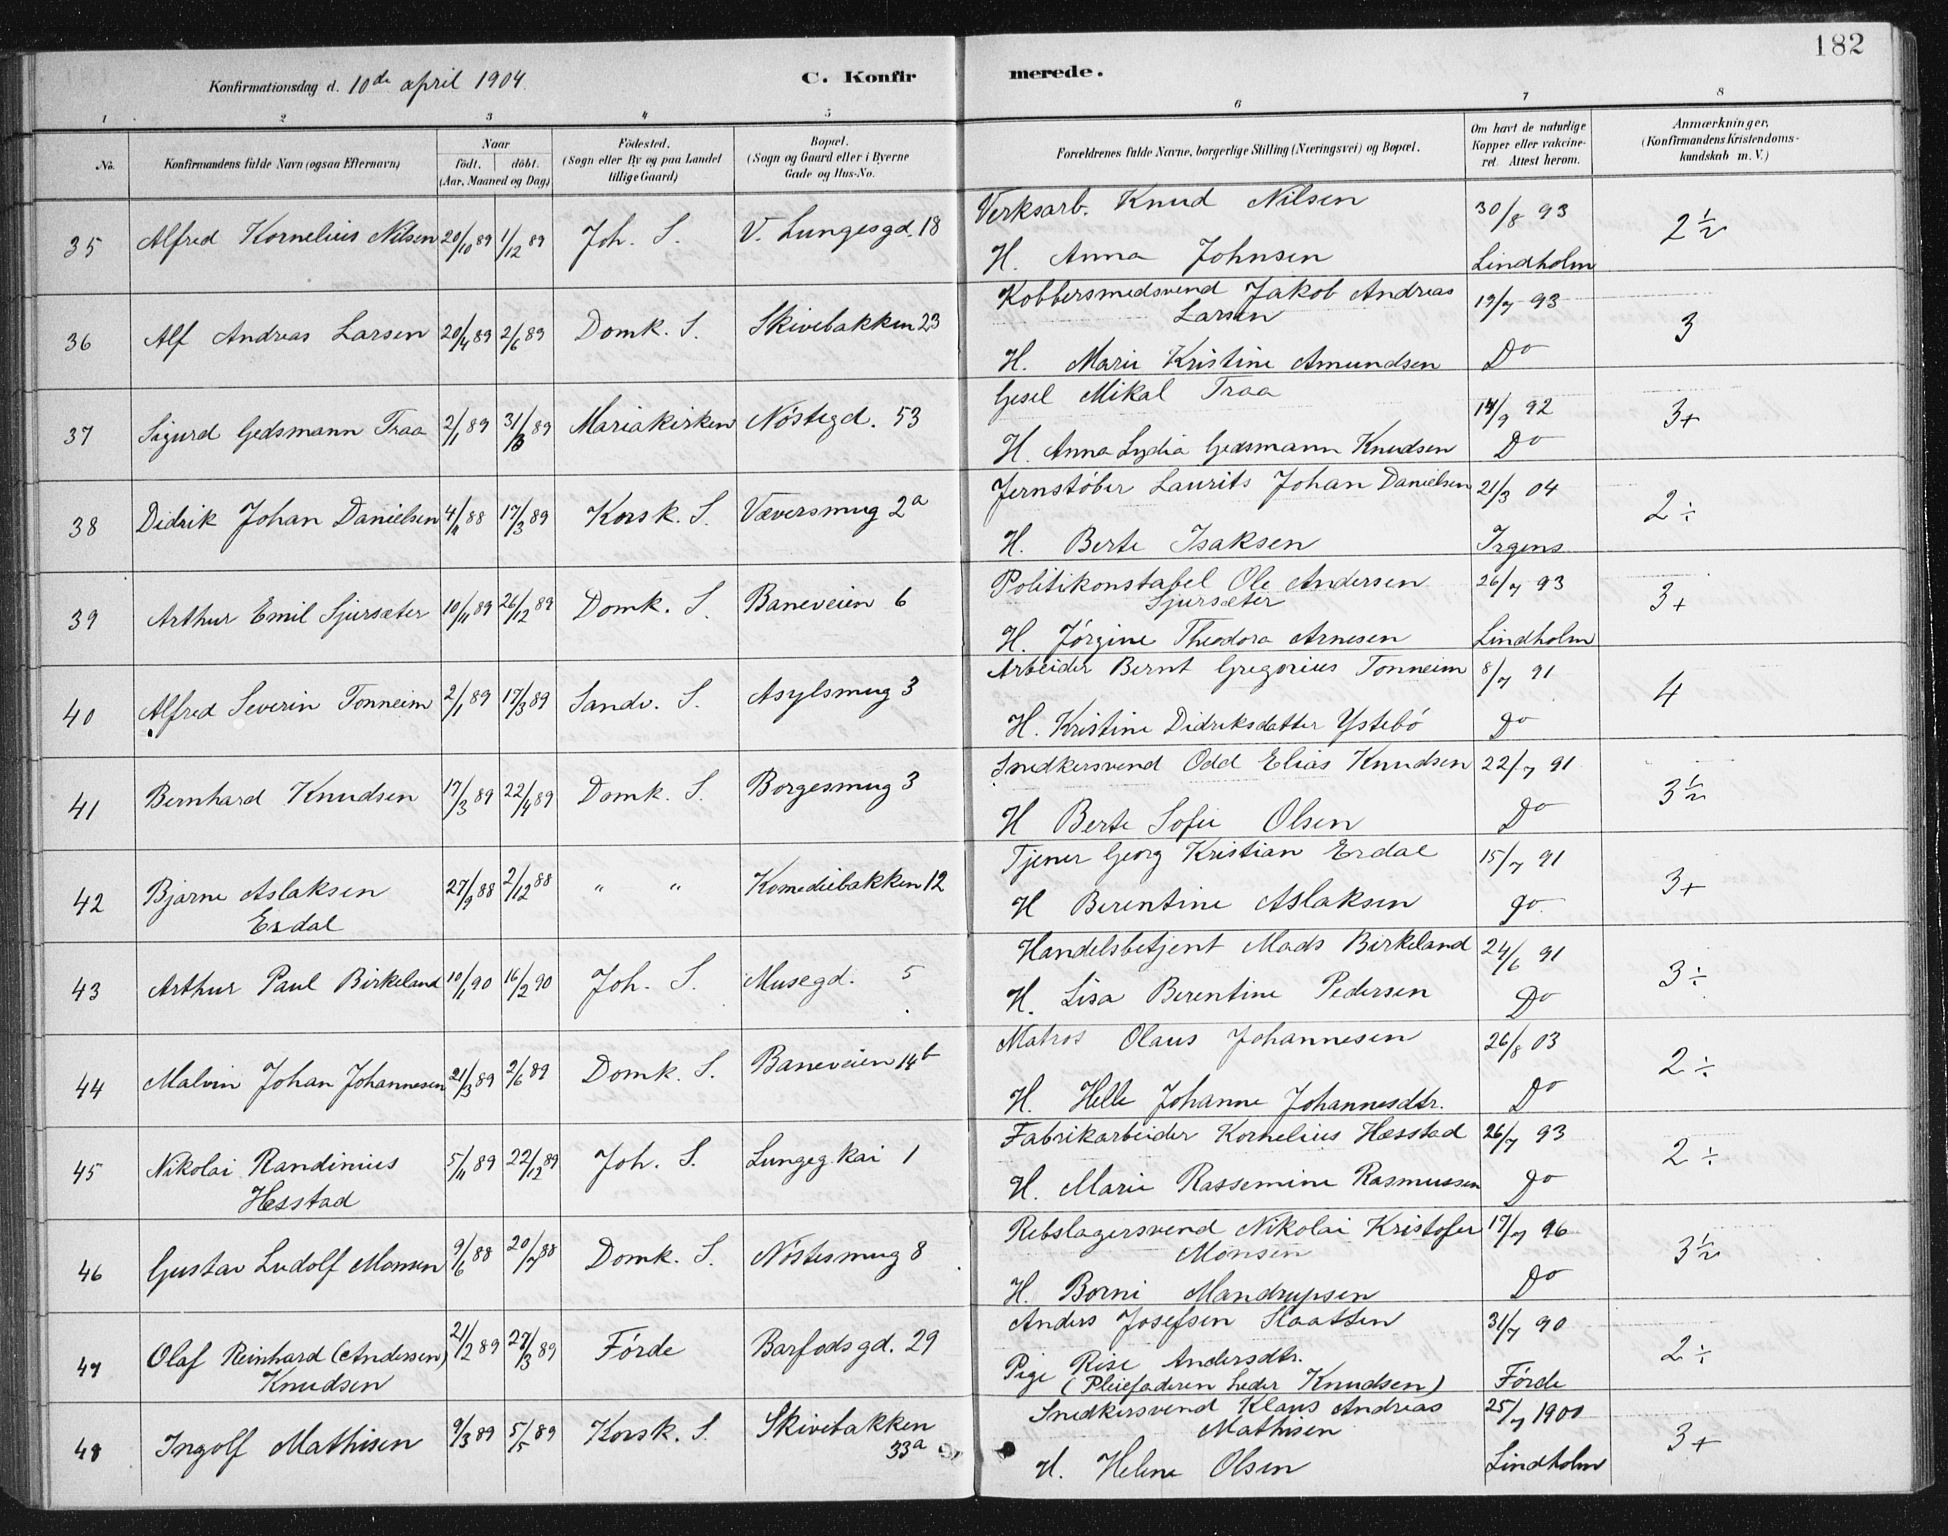 182
Konfirmationsdag d. 10de april 1904.
C. Konfirmerede.
1 2 3 4 5 6 7 8
No. Konfirmandens fulde Navn (ogsaa Efternavn) Naar født. døbt. (Aar, Maaned og Dag) Fødested. (Sogn eller By og paa Landet tillige Gaard) Bopæl. (Sogn og Gaard eller i Byerne Gade og Hus-No. Forældrenes fulde Navne, borgerlige Stilling (Næringsvei) og Bopæl. Om havt de naturlige Kopper eller vakcineret. Attest herom. Anmærkninger. (Konfirmandens Kristendomskundskab m. V.)
35 Alfred Kornelius Nilsen 20/10 89 1/12 89 Joh. S. V. Lungesgd. 18 Verksarb. Knud Nilsen 30/8 93 2 1/2
H. Anna Johnsen Lindholm
36 Alf Andreas Larsen 20/4 89 2/6 89 Domk. S. Skivebakken 23 Kobbersmedsvend Jakob Andreas 19/7 93 3
Larsen
H. Marie Kristine Amundsen Do
37 Sigurd Gedsmann Traa 2/1 89 31/3 89 Mariakirken Nøstegd. 53 Gesel Mikal Traa 14/9 92 3+
H. Anna Lydia Gedsmann Knudsen Do
38 Didrik Johan Danielsen 4/11 88 17/3 89 Korsk. S. Væversmug 2a Jernstøber Laurits Johan Danielsen 21/3 04 2 ÷
H. Berte Isaksen Irgens
39 Arthur Emil Sjursæter 10/11 89 26/12 89 Domk. S. Baneveien 6 Politikonstabel Ole Andersen 26/7 93 3+
Sjursæter
H. Jørgine Theodora Arnesen Lindholm
40 Alfred Severin Tonneim 2/1 89 17/3 89 Sandv. S. Asylsmug 3 Arbeider Bernt Gregorius Tonneim 8/7 91 4
H. Kristine Didriksdatter Ystebø Do
41 Bernhard Knudsen 17/3 89 22/4 89 Domk. S. Borgesmug 3 Snedkersvend Odd Elias Knudsen 22/7 91 3 1/2
H Berte Sofie Olsen Do
42 Bjarne Aslaksen 27/9 88 2/12 88 " " Komediebakken 12 Tjener Georg Kristian Erdal 15/7 91 3+
Erdal H Berentine Aslaksen do.
43 Arthur Paul Birkeland 10/1 90 16/2 90 Joh. S. Musegd. 5 Handelsbetjent Mads Birkeland 24/6 91 3 ÷
H. Lisa Berentine Pedersen Do
44 Malvin Johan Johannesen 21/3 89 2/6 89 Domk. S. Baneveien 14b Matros Olaus Johannesen 26/8 03 2 ÷
H. Helle Johanne Johannesdtr. Do
45 Nikolai Randinius 5/11 89 22/12 89 Joh. S. Lungegkai 1 Fabrikarbeider Kornelius Hæsstad 26/7 93 2 ÷
Hæsstad H. Marie Rassemine Rasmussen Do
46 Gustav Ludolf Monsen 9/6 88 20/7 88 Domk. S. Nøstesmug 8 Rebslagersvend Nikolai Kristofer 17/7 96 3 1/2
Monsen
H. Borni Mandrupsen Do
47 Olaf Reinhard (Andersen) 21/2 89 27/3 89 Førde Barfodsgd. 29 Anders Josefsen Slaatten 31/7 90 2 ÷
Knudsen Pige Rise Andersdtr.
(Pleiefaderen heder Knudsen) Førde
48 Ingolf Mathisen 9/3 89 5/5 89 Korsk. S. Skivebakken 33a Snedkersvend Klaus Andreas 25/7 1900 3+
Mathisen
H. Helene Olsen Lindholm